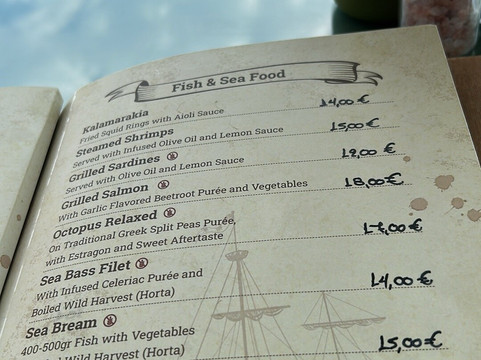 Fish & Sea Food
Kalamarakia 14,00 €
Fried Squid Rings with Aioli Sauce
Steamed Shrimps 15,00 €
Served with Infused Olive Oil and Lemon Sauce
Grilled Sardines 12,00 €
Served with Olive Oil and Lemon Sauce
Grilled Salmon 18,00 €
With Garlic Flavored Beetroot Purée and Vegetables
Octopus Relaxed ,00 €
On Traditional Greek Split Peas Purée,
with Estragon and Sweet Aftertaste
Sea Bass Filet 14,00 €
With Infused Celeriac Purée and
Boiled Wild Harvest (Horta)
Sea Bream 15,00 €
400-500gr Fish with Vegetables
Wild Harvest (Horta)